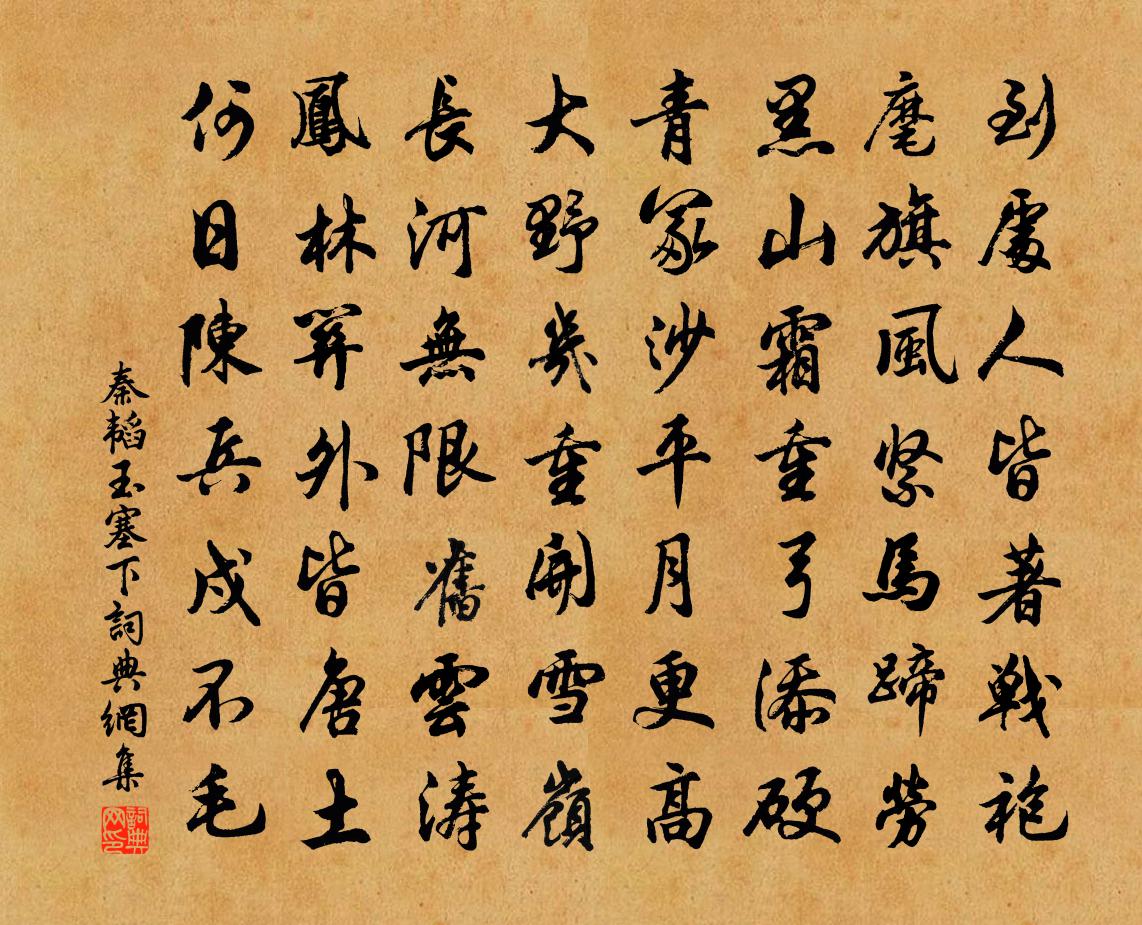 到處人皆著戰袍
麾旗風緊馬蹄勞
黑山霜重弓添硬
青冢沙平月更高
大野幾重開雪嶺
長河無限舊雲濤
鳳林關外皆唐土
何日陳兵戍不毛
秦韜玉塞下詞典網集
詞典网印